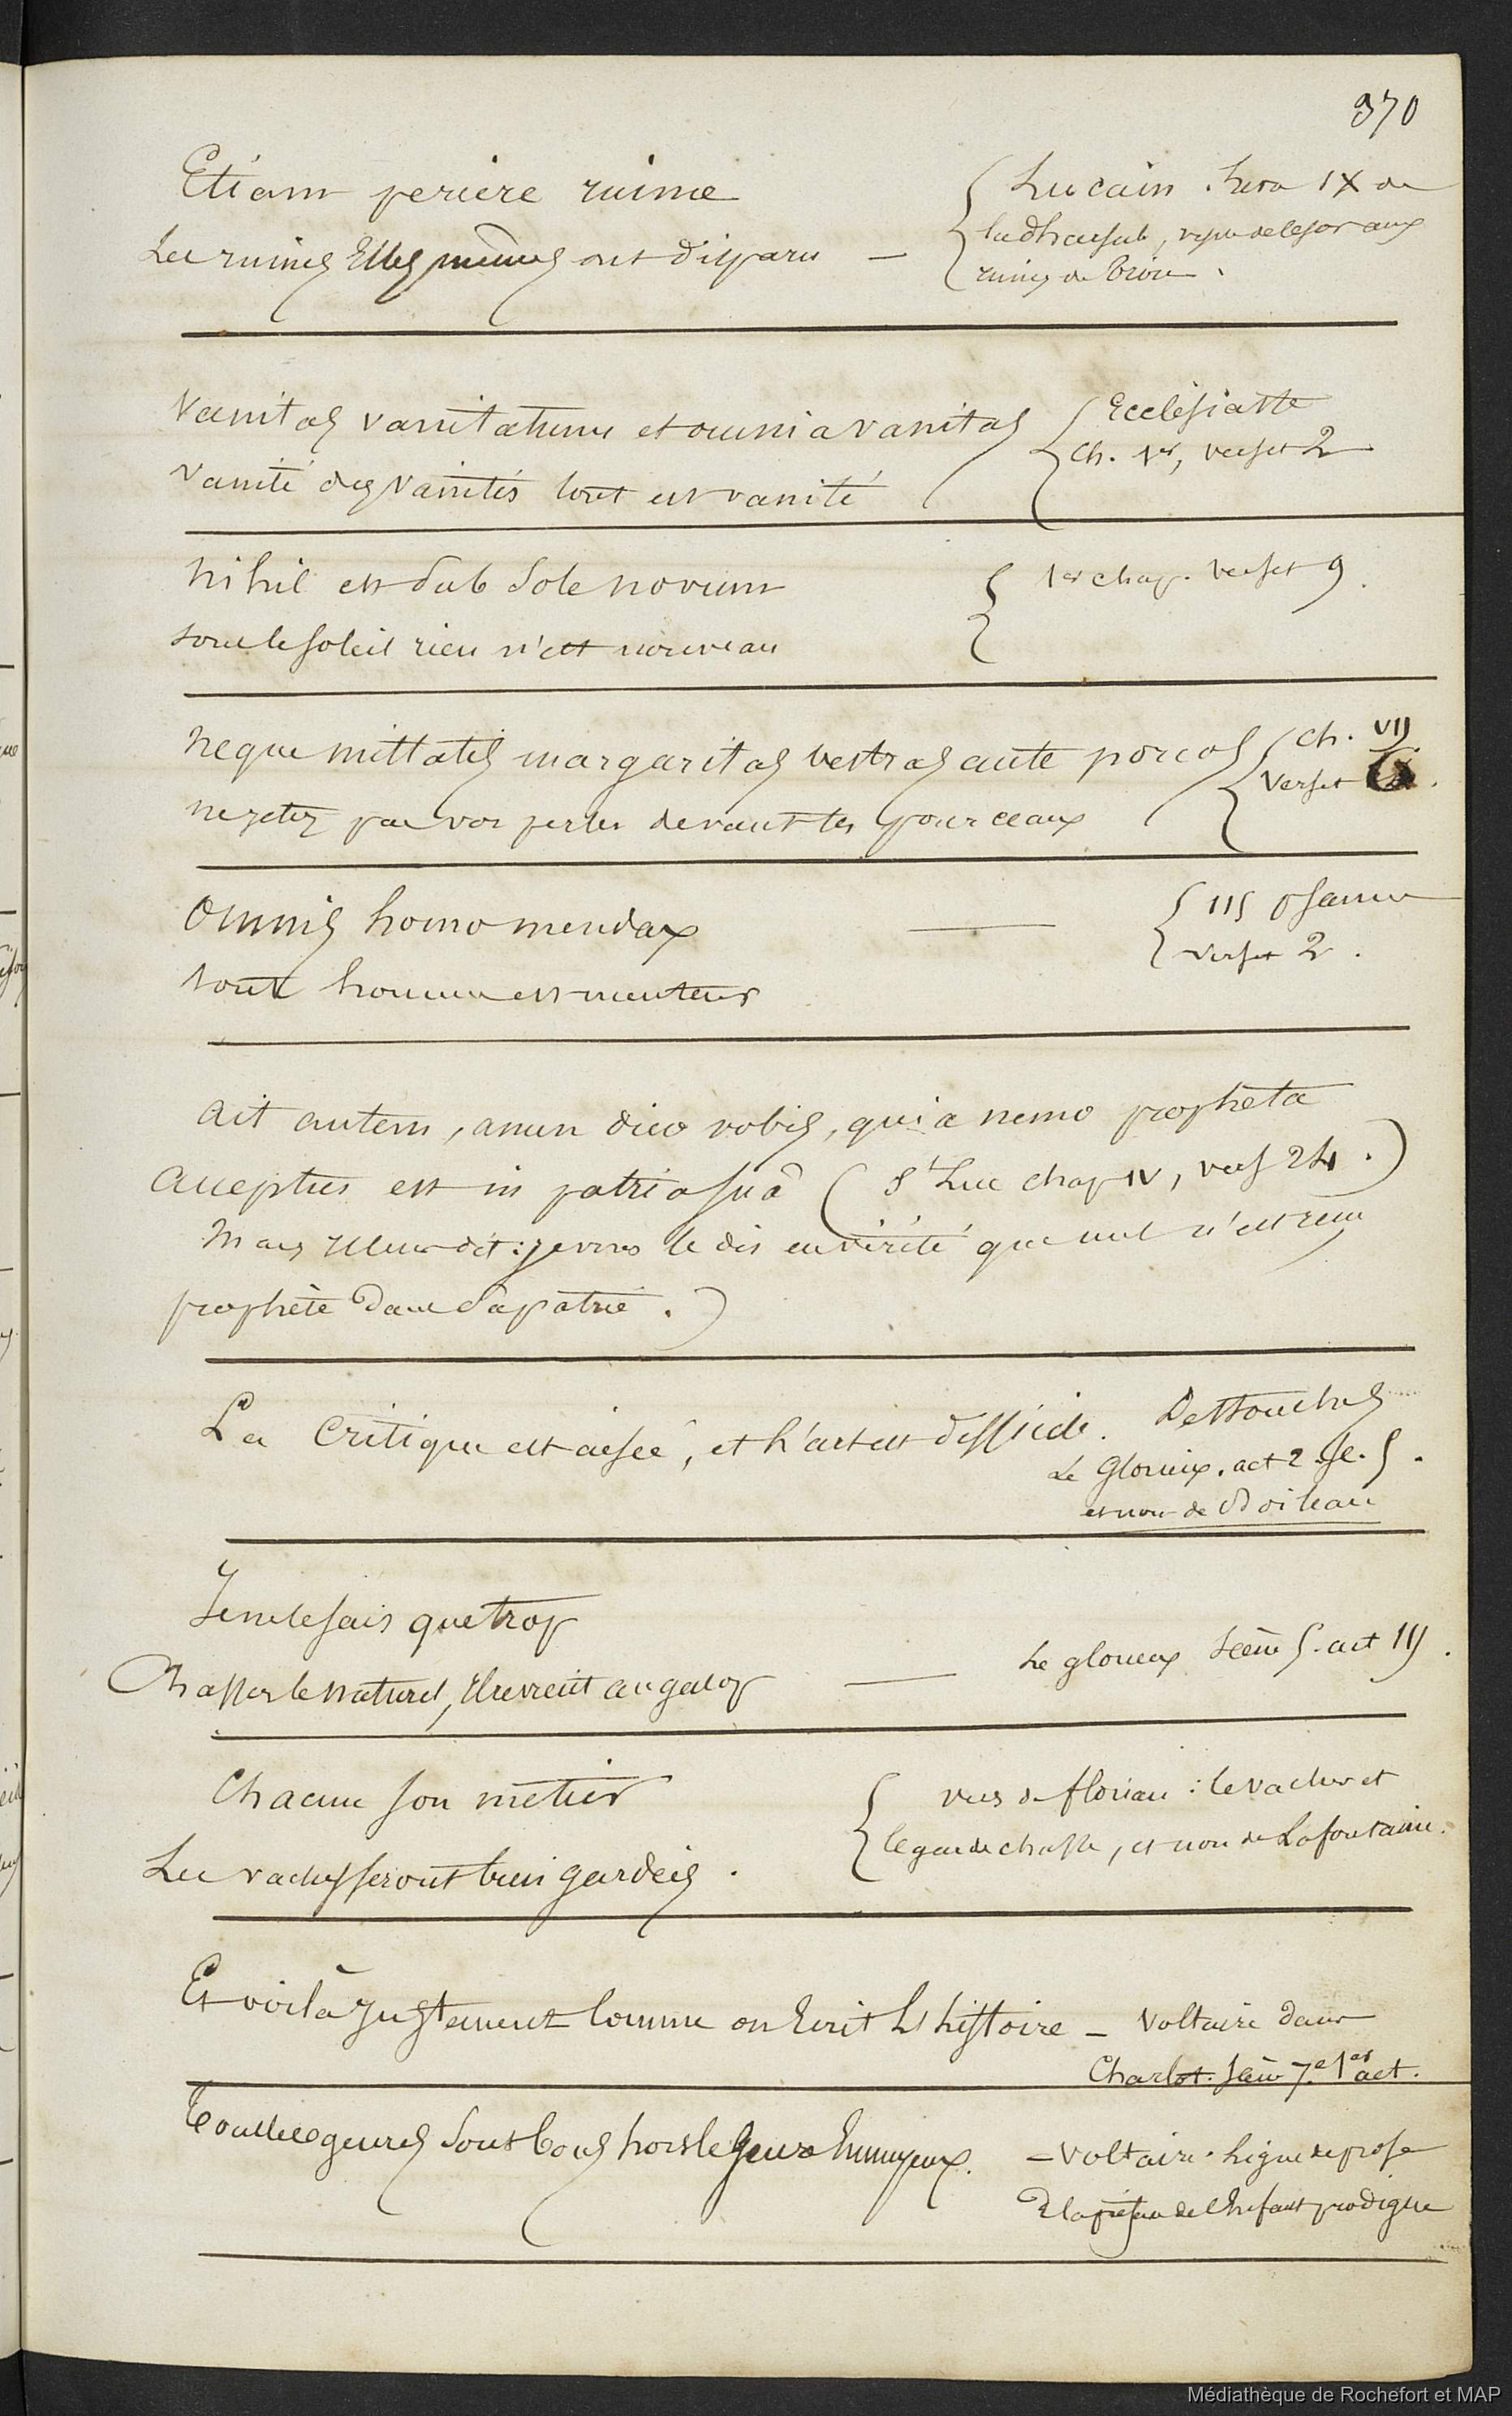 370
Etiam periere ruinæ
Les ruines Elles mêmes ont disparu —
Lucain. livre IX de
la Pharsale, visite de César aux
ruines de Troie.
Vanitas vanitatum et omnia vanitas
vanité des vanités tout est vanité
Ecclésiaste
Ch. 1er, verset 2
Nihil est sub sole novum
sous le soleil rien n'est nouveau
1er chap. verset 9.
neque mittatis margaritas vestras ante porcos
ne jetez pas vos perles devant les pourceaux
ch. VII
verset 6.
Omnis homo mendax
tout homme est menteur
115 psaume
verset 2.
ait autem, amen dico vobis, quia nemo propheta
acceptus est in patria suâ (St Luc chap IV, vers 24.)
Mais il leur dit: je vous le dis en vérité que nul n'est reçu
prophète dans sa patrie.)
La Critique est aisée, et l'art est difficile. Destouches
Le Glorieux. act 2. sc. 5.
et non de Boileau
Je ne le sais que trop
Chassez le naturel, il revient au galop —
Le glorieux scène 5. act III.
Chacun son métier
Les vaches seront bien gardées.
vers de florian: le vacher et
le garde chasse, et non de Lafontaine.
Et voilà justement comme on Ecrit L'histoire — Voltaire dans
Charlot. scène 7e 1er act.
Tous les genres sont bons hors le genre Ennuyeux.
— Voltaire. Ligne de prose
De la préface de l'Enfant prodigue
Médiathèque de Rochefort et MAP